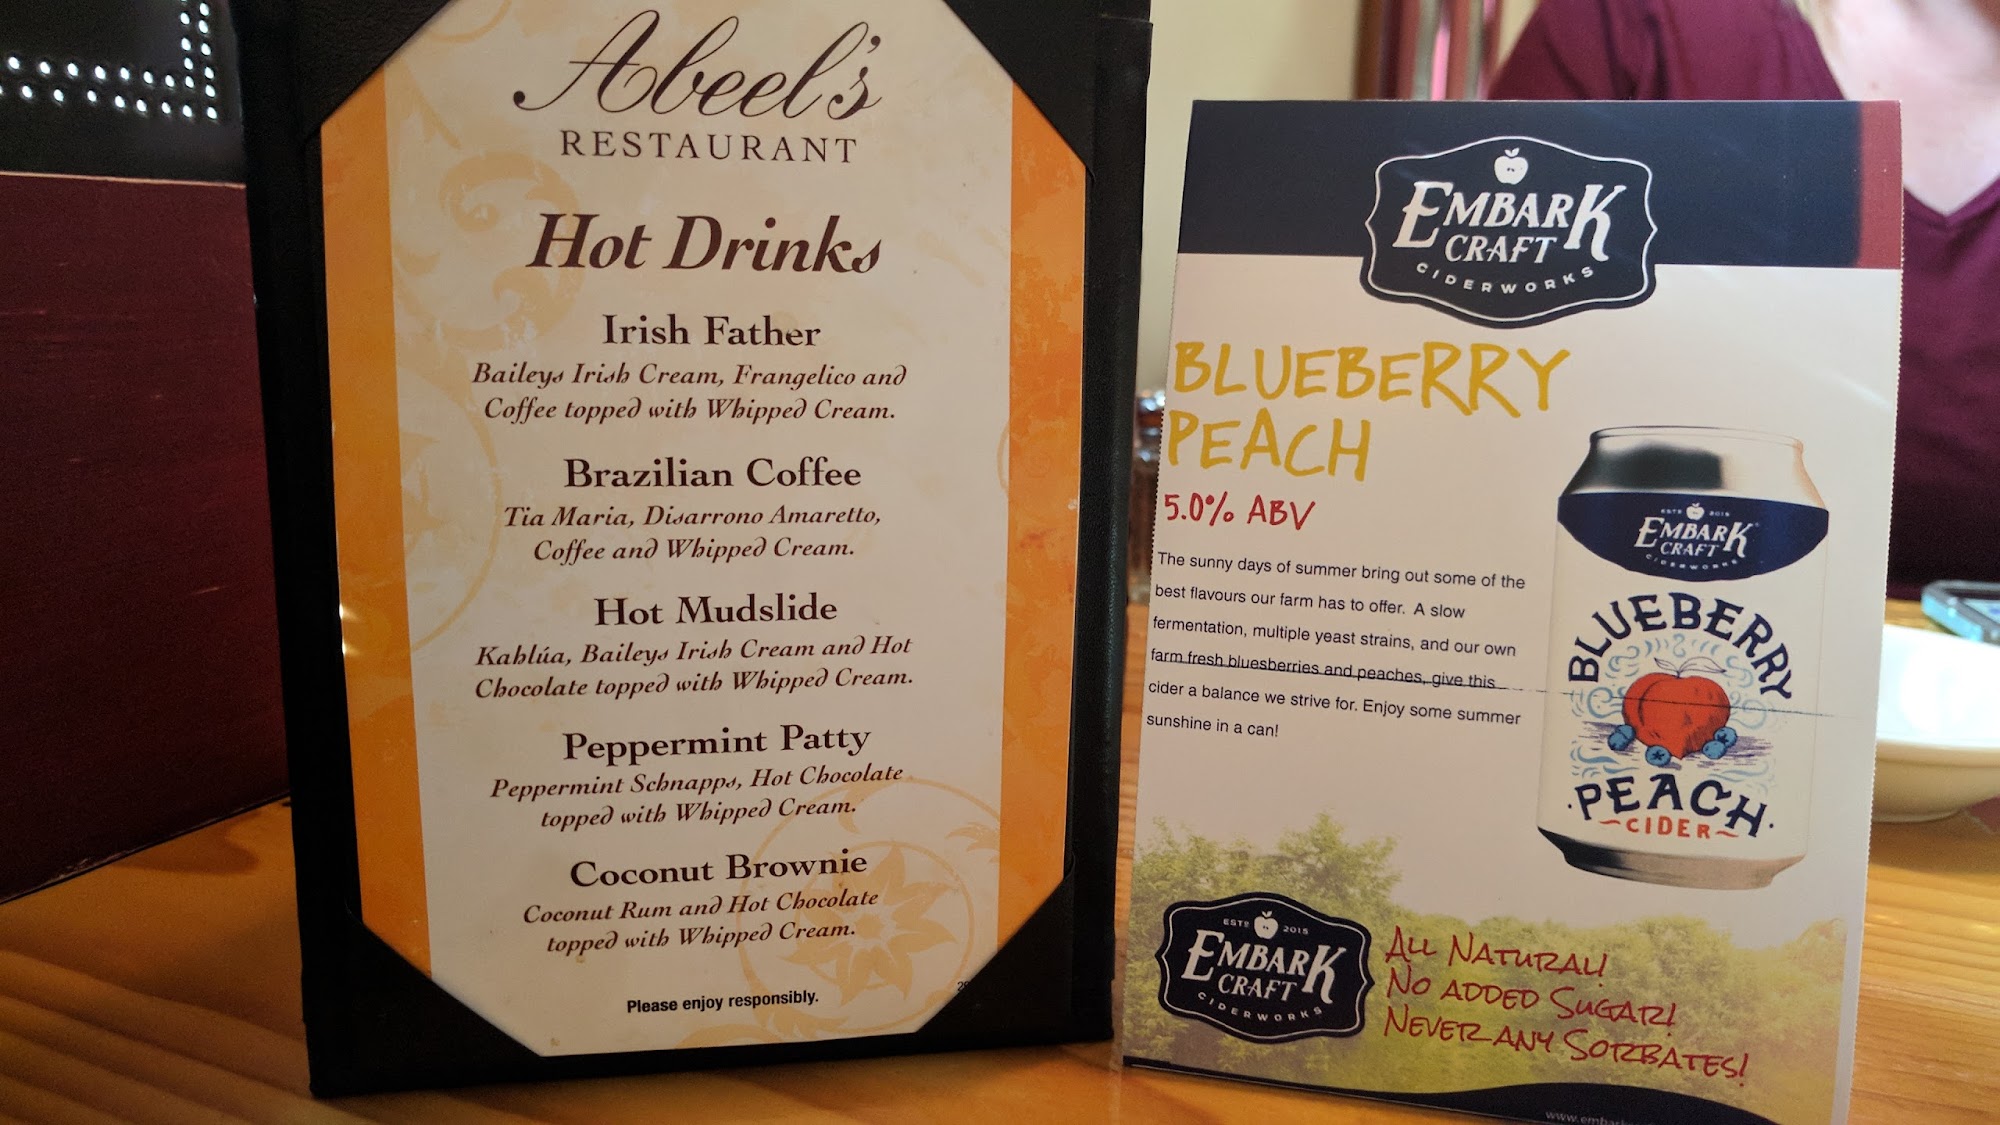 Abeel's
RESTAURANT
Hot Drinks
Irish Father
Baileys Irish Cream, Frangelico and
Coffee topped with Whipped Cream.
Brazilian Coffee
Tia Maria, Disarrono Amaretto,
Coffee and Whipped Cream.
Hot Mudslide
Kahlúa, Baileys Irish Cream and Hot
Chocolate topped with Whipped Cream.
Peppermint Patty
Peppermint Schnapps, Hot Chocolate
topped with Whipped Cream.
Coconut Brownie
Coconut Rum and Hot Chocolate
topped with Whipped Cream.
Please enjoy responsibly.
EMBARK
CRAFT
CIDERWORKS
BLUEBERRY
PEACH
5.0% ABV
The sunny days of summer bring out some of the
best flavours our farm has to offer. A slow
fermentation, multiple yeast strains, and our own
farm fresh bluesberries and peaches, give this
cider a balance we strive for. Enjoy some summer
sunshine in a can!
ESTD 2015
EMBARK
CRAFT
CIDERWORKS
BLUEBERRY
PEACH
CIDER
ESTD 2015
EMBARK
CRAFT
CIDERWORKS
ALL NATURAL!
NO ADDED SUGAR!
NEVER ANY SORBATES!